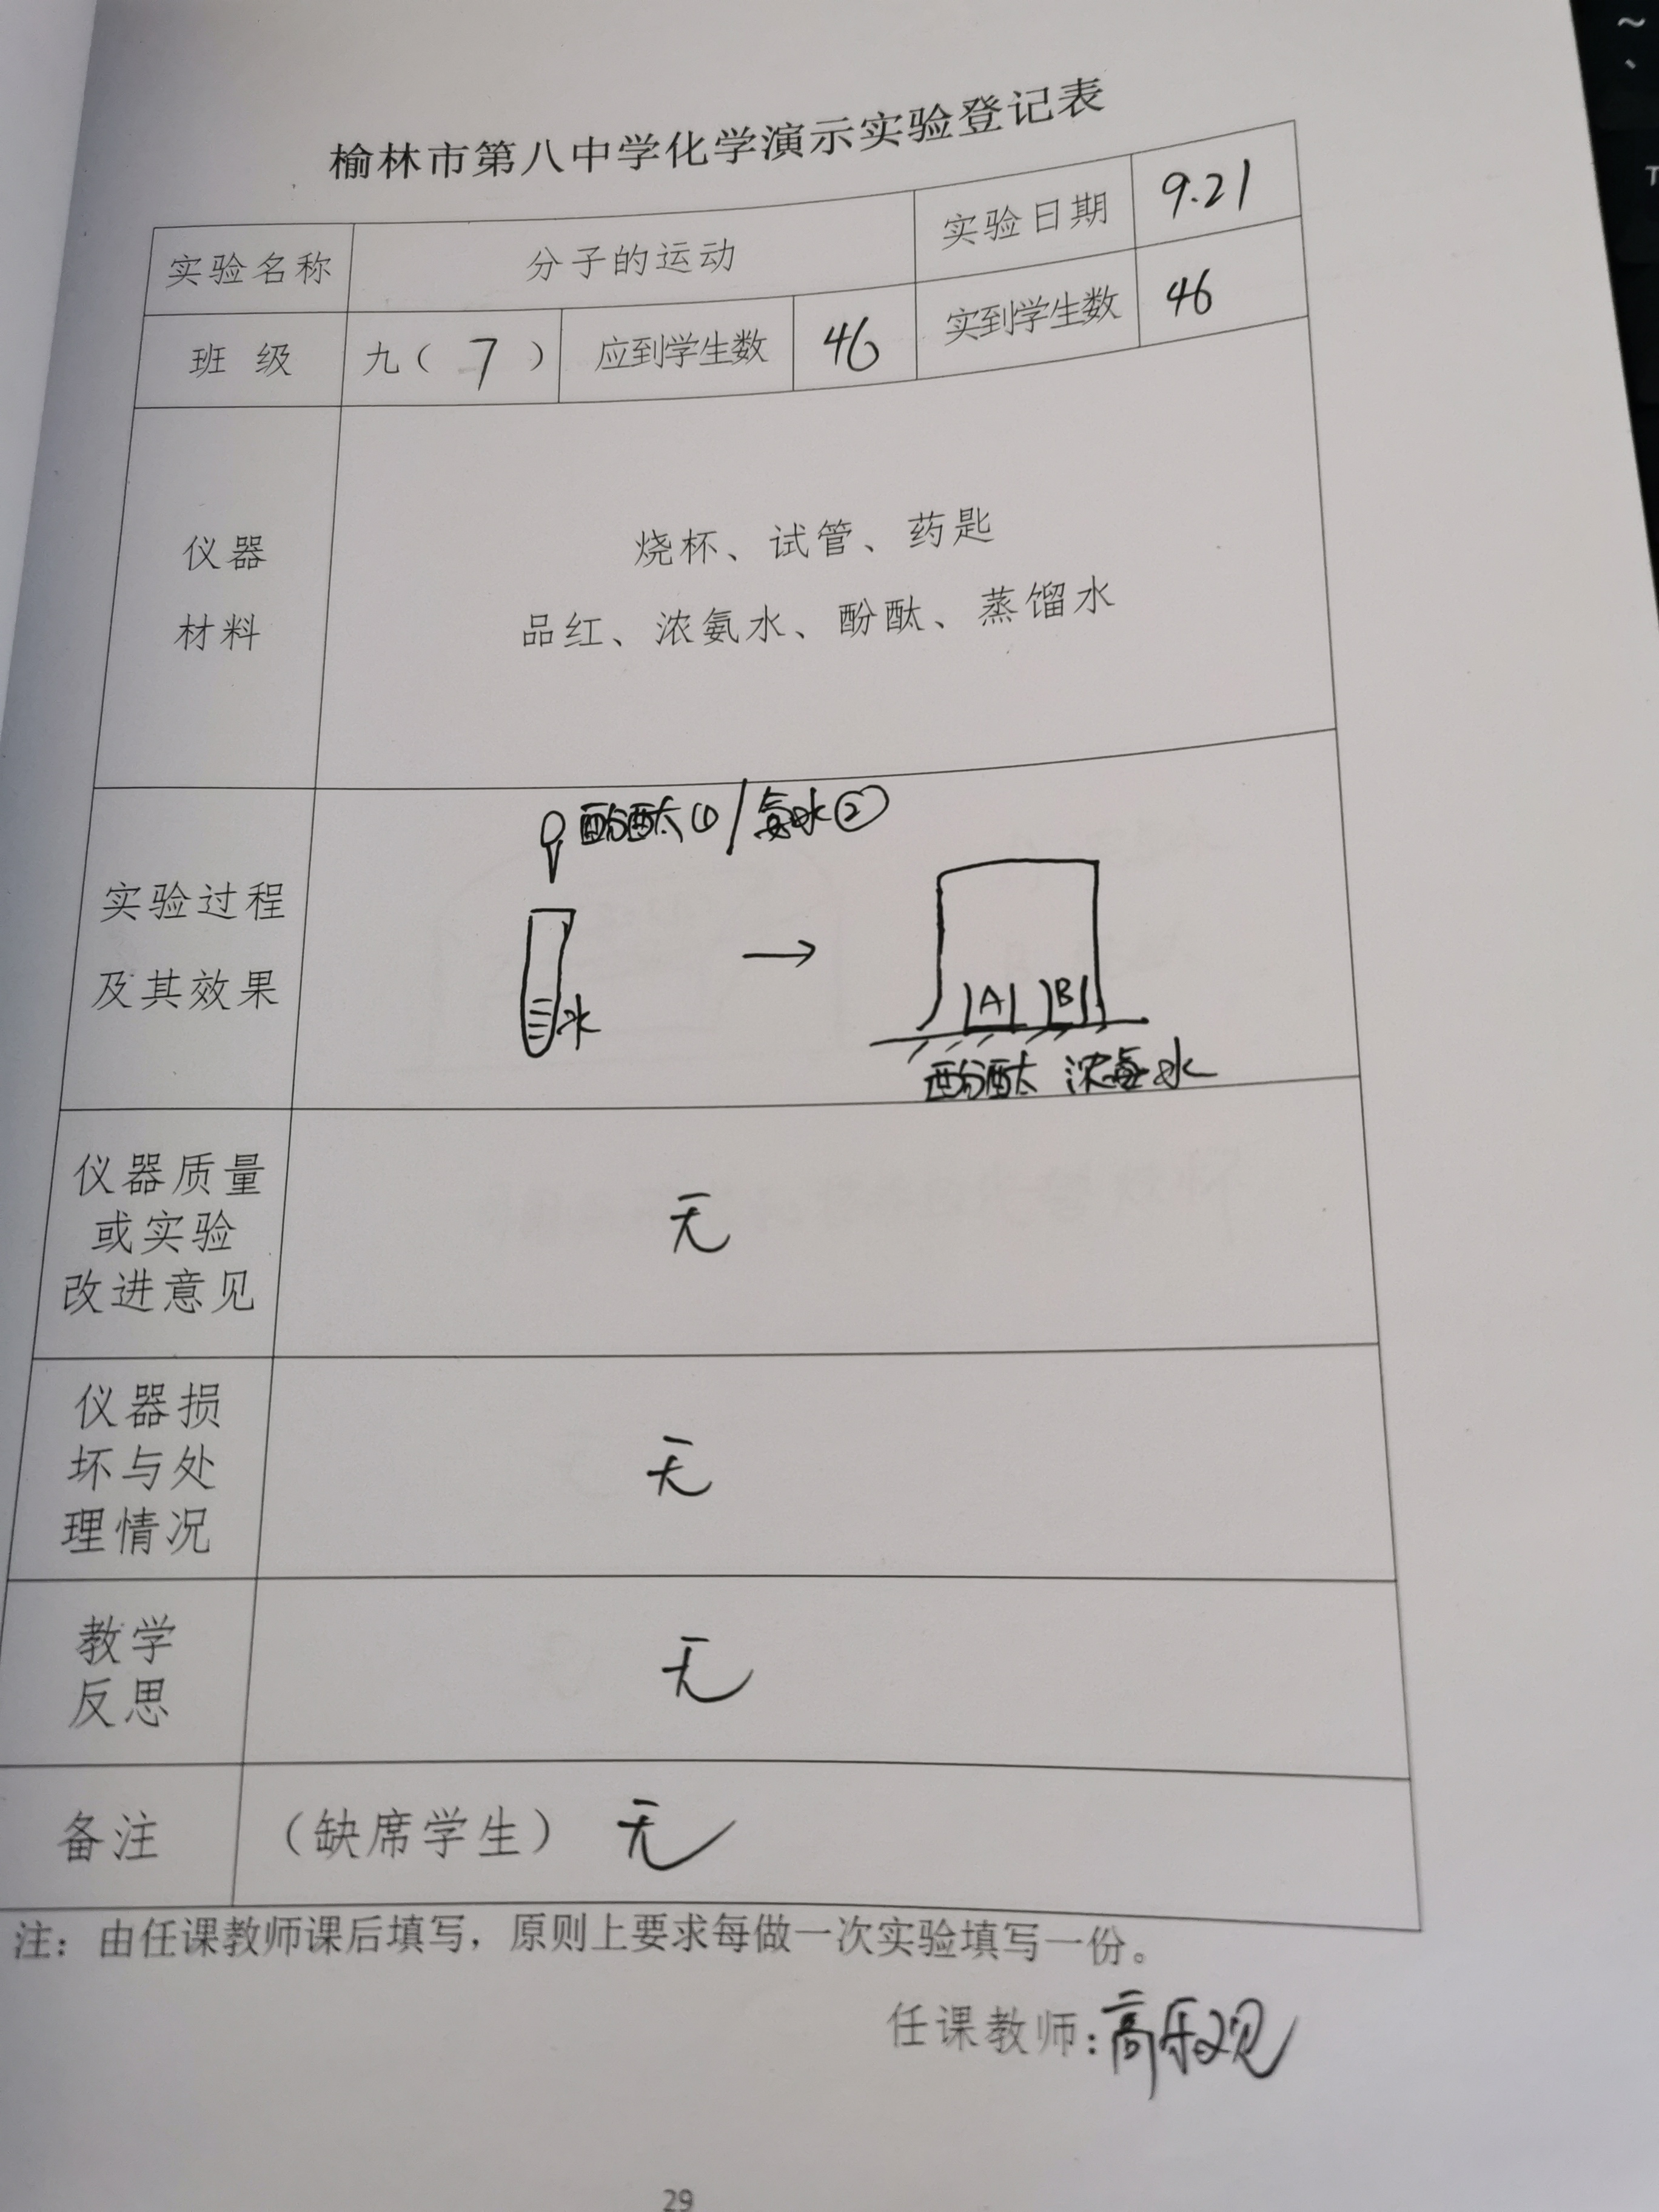 榆林市第八中学化学演示实验登记表
实验名称 分子的运动 实验日期 9.21
班 级 九（ 7 ） 应到学生数 46 实到学生数 46
仪器
材料
烧杯、试管、药匙
品红、浓氨水、酚酞、蒸馏水
实验过程
及其效果
酚酞① / 氨水②
水
→
A B
酚酞 浓氨水
仪器质量
或实验
改进意见
无
仪器损
坏与处
理情况
无
教学
反思
无
备注 （缺席学生） 无
注：由任课教师课后填写，原则上要求每做一次实验填写一份。
任课教师：高乐观
29